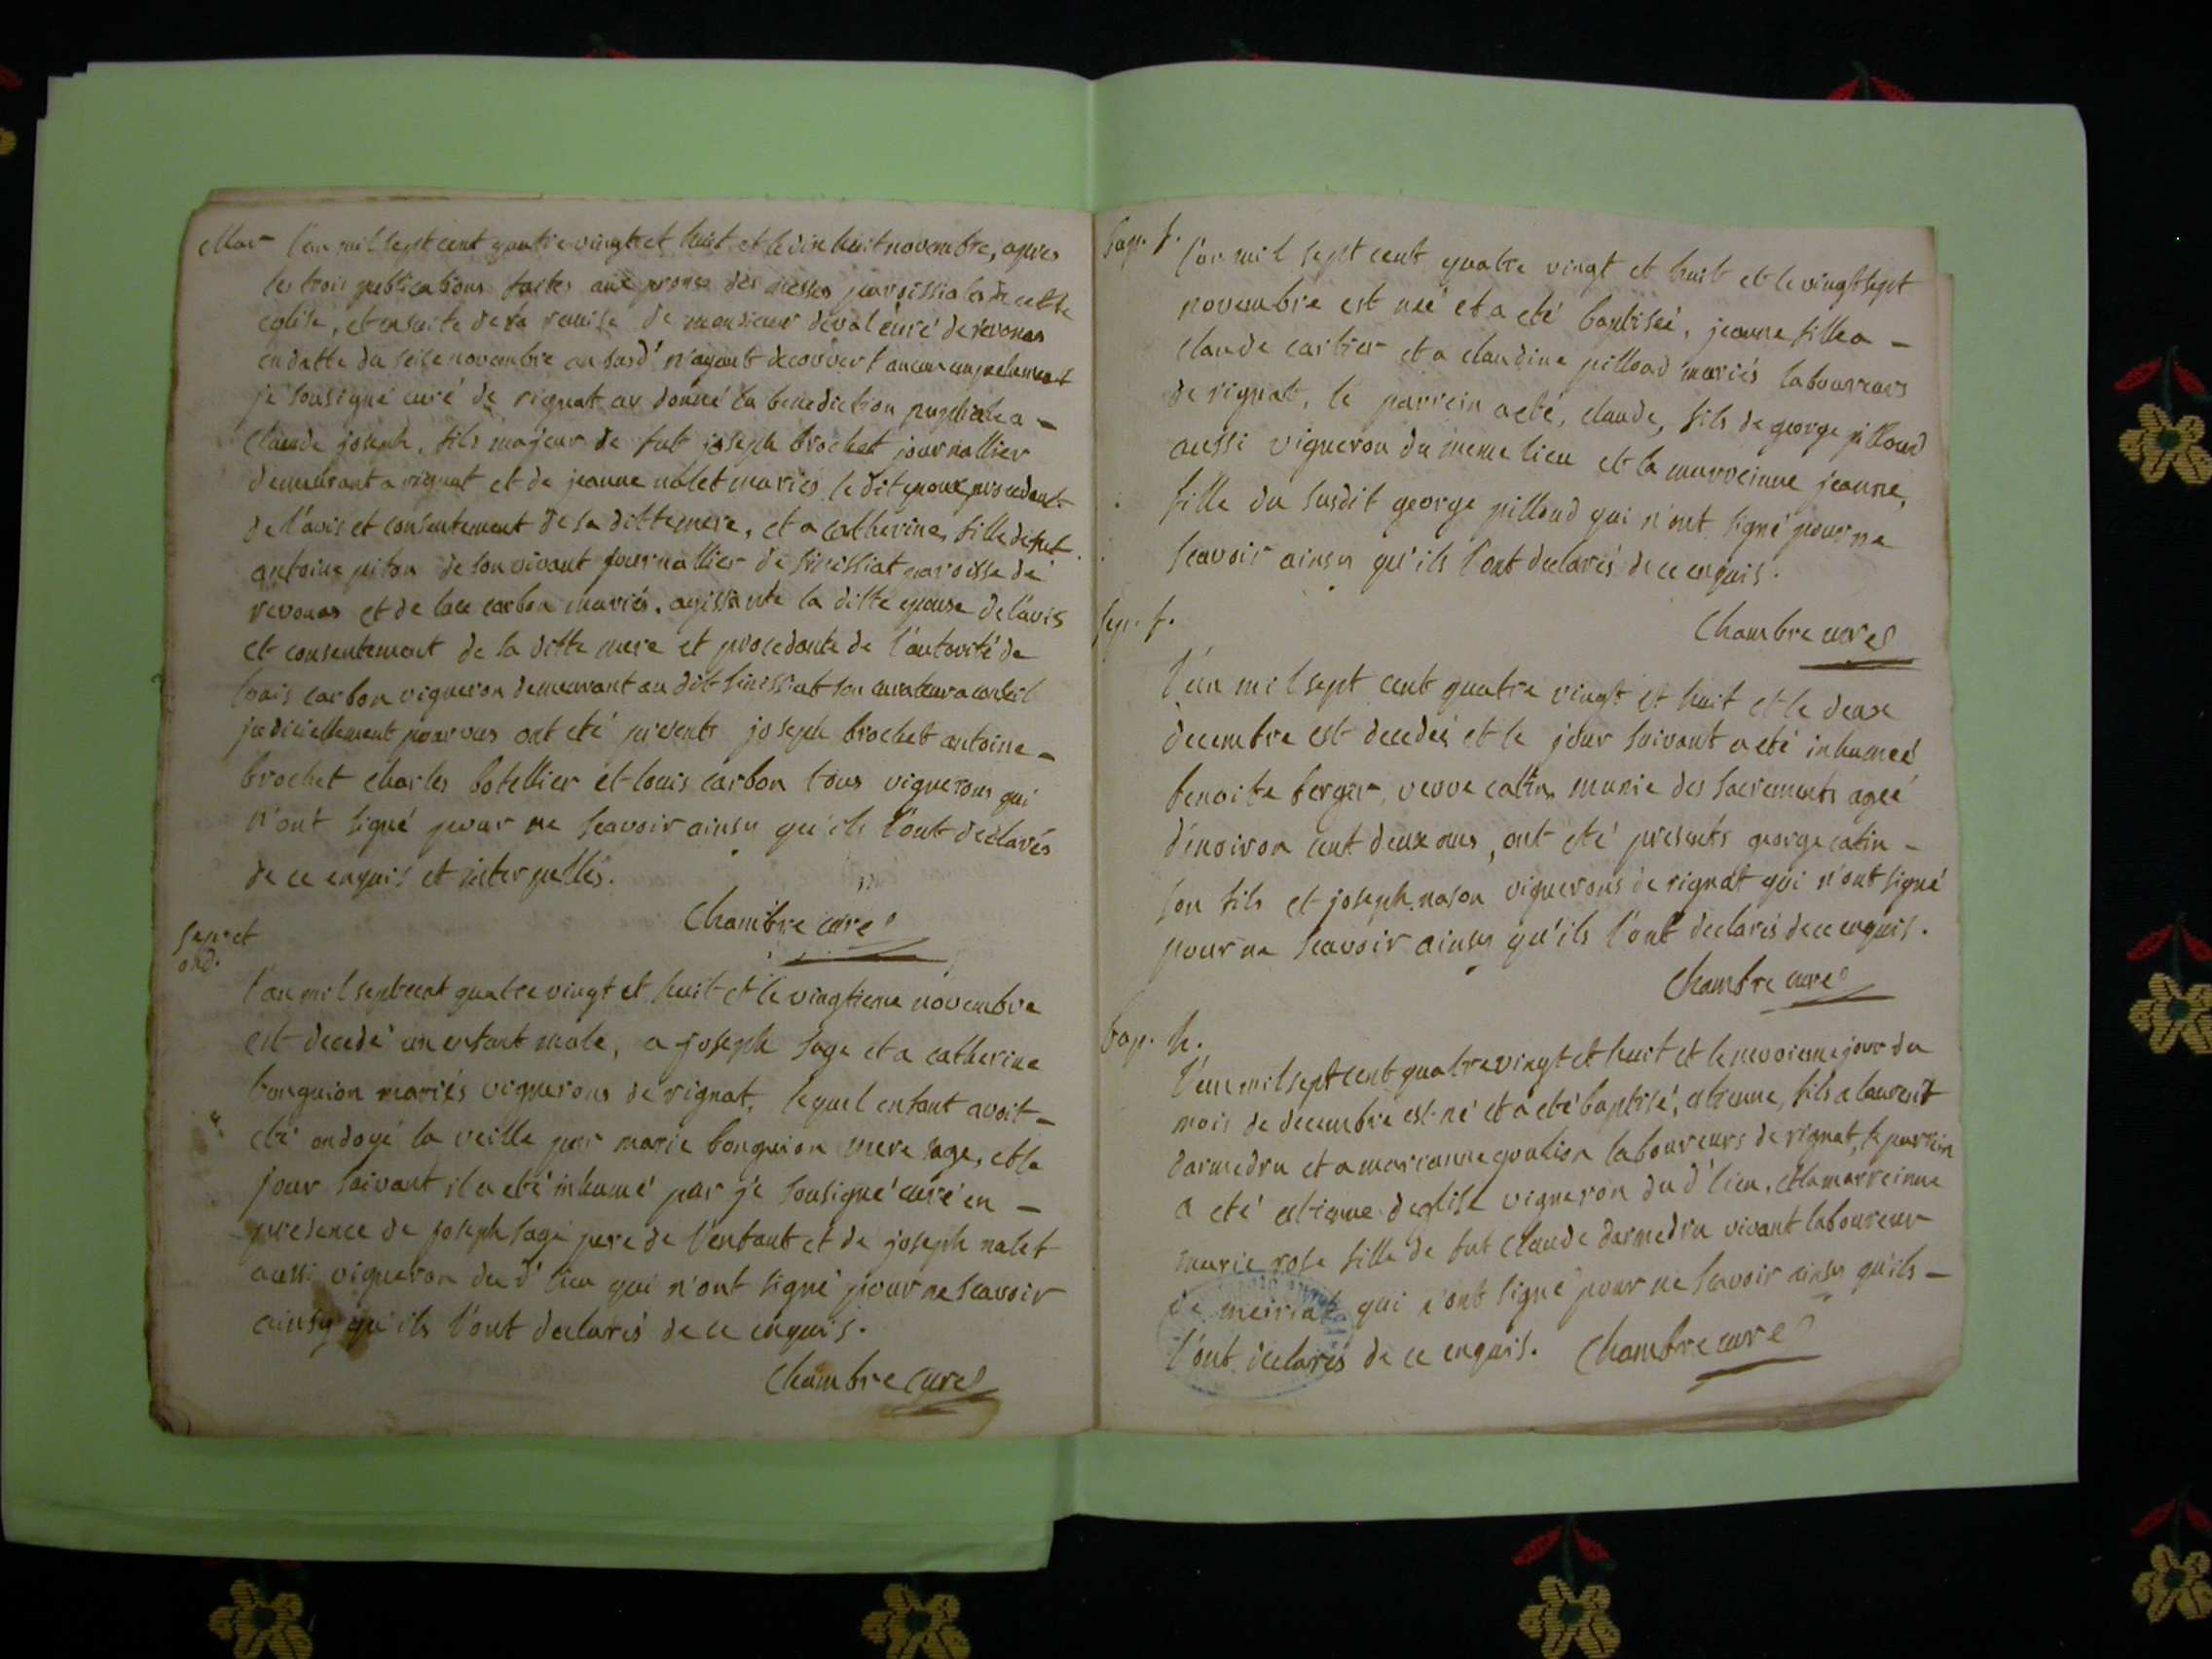 Mar l'an mil sept cent quatre vingt et huit et le dix huit novembre, apres
les trois publications faites aux prones des messes paroissiales de cette
eglise, et ensuite de la remise de monsieur deval curé de revonas
en datte du seise novembre an susd' n'ayant decouvert aucun empechement
je sousigné curé de rignat ay donné la benediction nuptiale a -
claude joseph, fils majeur de fut joseph brochet journallier
demeurant a rignat et de jeanne nalet mariés le dit epoux procedant
de l'avis et consentement de sa ditte mere, et a catherine, fille de fut
antoine piton de son vivant journallier de sinissiat paroisse de
revonas et de carbon mariés, agissante la ditte epouse de l'avis
et consentement de sa ditte mere et procedante de l'autorité de
louis carbon vigneron demeurant au dit sinissiat son curateur a conseil
judiciellement pourvus ont eté presents joseph brochet antoine -
brochet charles botellier et louis carbon tous vignerons qui
n'ont signé pour ne scavoir ainsy qu'ils l'ont declarés
de ce enquis et interpellés.
Chambre curé
sep. et
ond.
l'an mil sept cent quatre vingt et huit et le vingtieme novembre
est decedé un enfant male, a joseph sage et a catherine
bonguion mariés vignerons de rignat, lequel enfant avoit -
eté ondoyé la veille par marie bonguion mere sage, et le
jour suivant il a eté inhumé par je sousigné curé en -
presence de joseph sage pere de l'enfant et de joseph nalet
aussi vigneron du d' lieu qui n'ont signé pour ne scavoir
ainsy qu'ils l'ont declarés de ce enquis.
Chambre curé
bap. f.
l'an mil sept cent quatre vingt et huit et le vingt sept
novembre est neé et a eté baptiseé, jeanne fille a -
claude cartier et a claudine pilloud mariés laboureurs
de rignat, le parrein a eté, claude, fils de george pilloud
aussi vigneron du meme lieu et la marreinne jeanne,
fille du susdit george pilloud qui n'ont signé pour ne
scavoir ainsy qu'ils l'ont declarés de ce enquis.
Chambre curé
sep. f.
l'an mil sept cent quatre vingt et huit et le deux
decembre est decedeé et le jour suivant a eté inhumeé
benoite berger, veuve catin, munie des sacrements ageé
d'environ cent deux ans, ont eté presents george catin -
son fils et joseph nason vignerons de rignat qui n'ont signé
pour ne scavoir ainsy qu'ils l'ont declarés de ce enquis.
Chambre curé
bap. h.
l'an mil sept cent quatre vingt et huit et le neuvieme jour du
mois de decembre est né et a eté baptisé, estienne, fils a laurent
darmedru et a marianne laboureurs de rignat, le parrein
a eté estienne deglise vigneron du d' lieu, et la marreinne
marie rose fille de fut claude darmedru vivant laboureur
de meiriat qui n'ont signé pour ne scavoir ainsy qu'ils -
l'ont declarés de ce enquis. Chambre curé